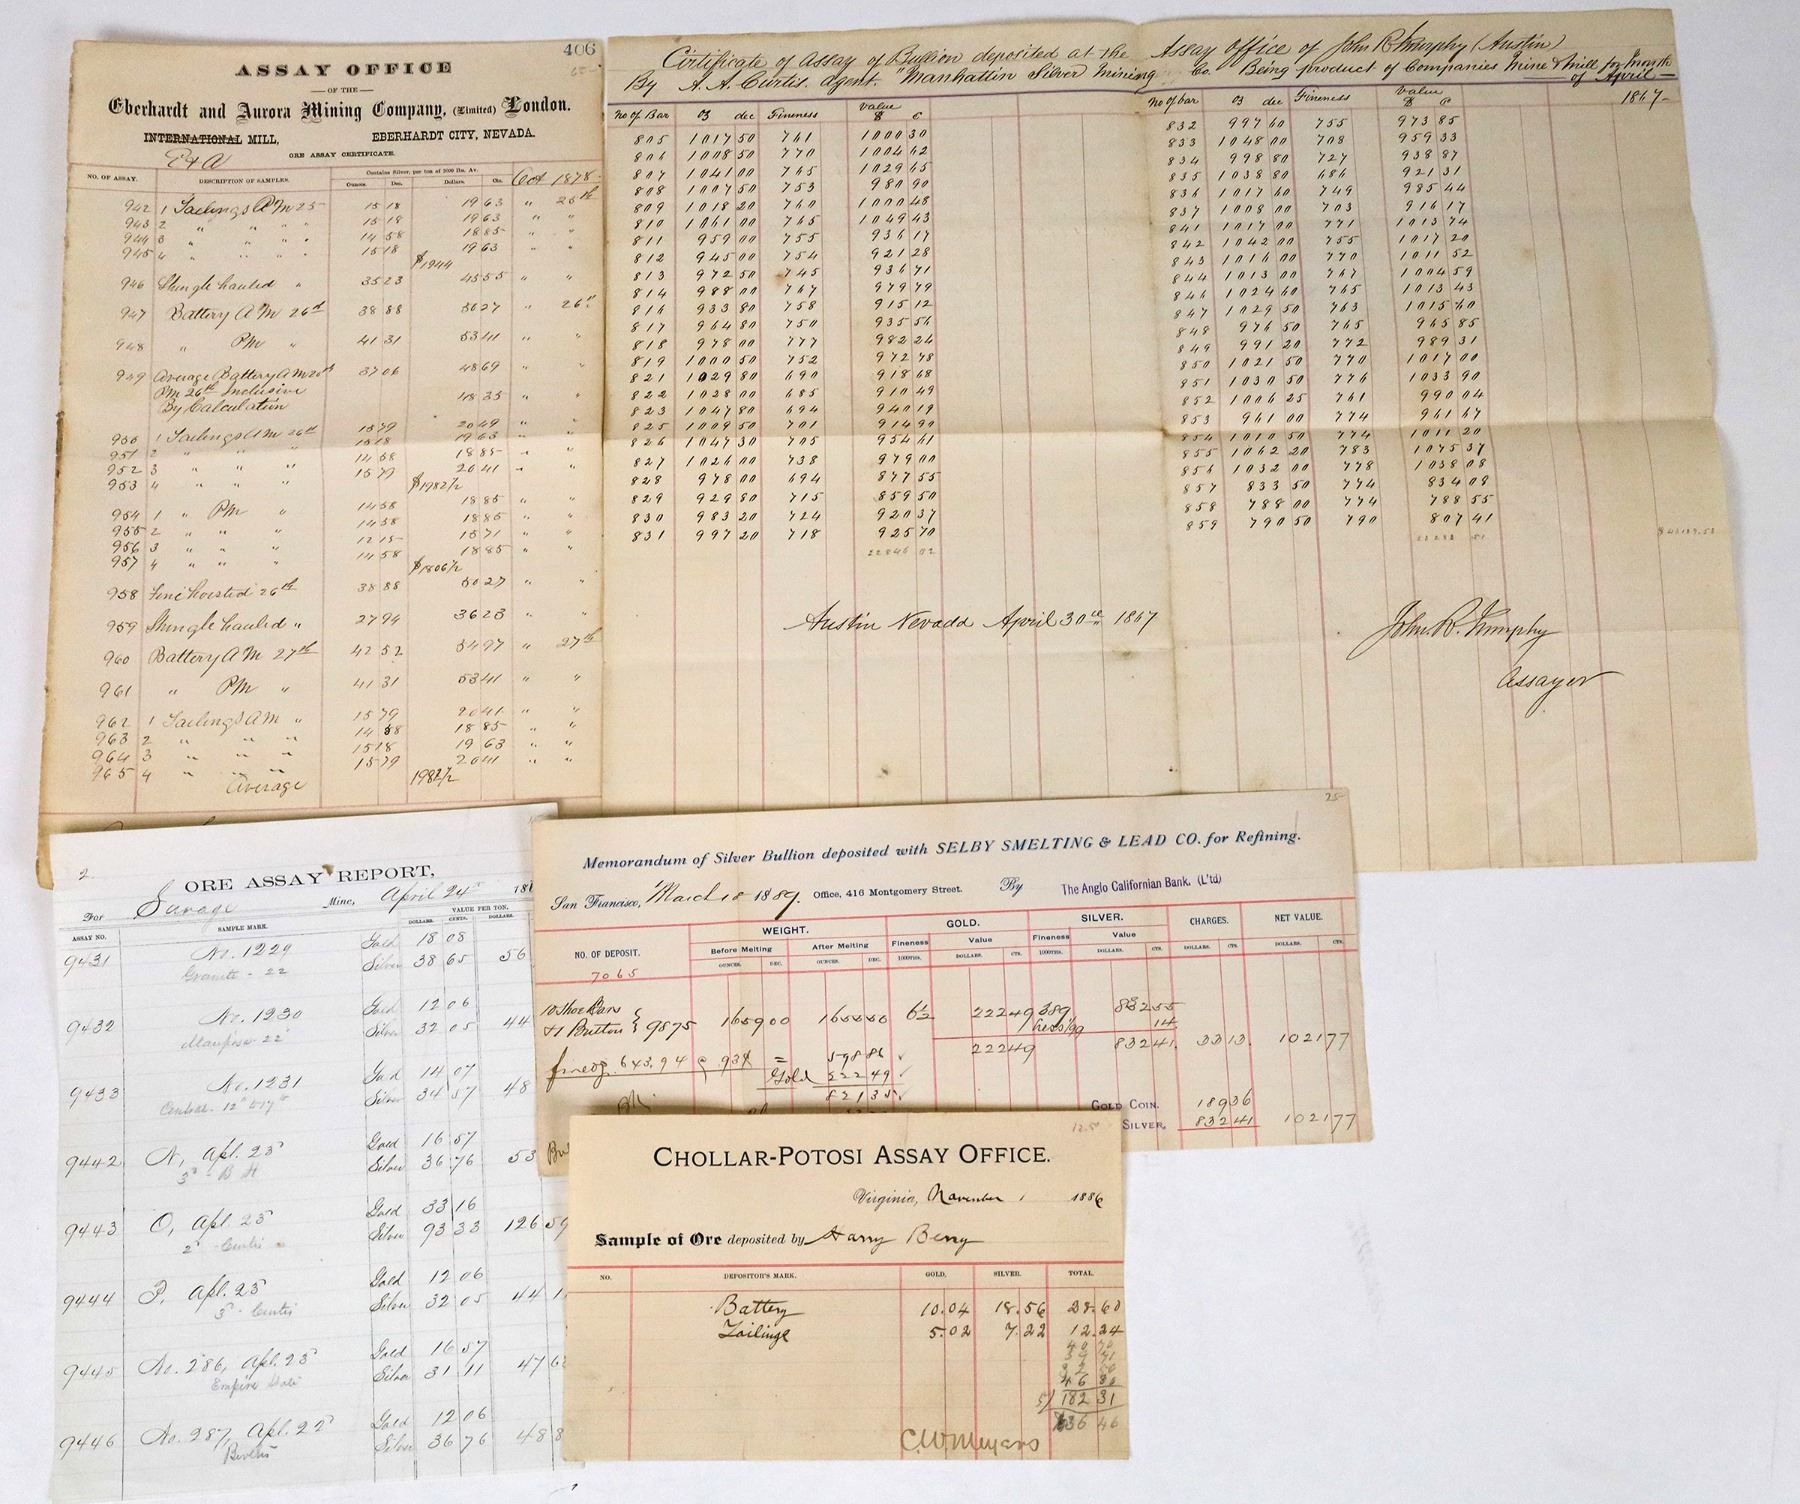 406
ASSAY OFFICE
OF THE
Eberhardt and Aurora Mining Company, (Limited) London.
INTERNATIONAL MILL, EBERHARDT CITY, NEVADA.
E & A
ORE ASSAY CERTIFICATE.
NO. OF ASSAY. DESCRIPTION OF SAMPLES. Contains Silver, per ton of 2000 lbs. Av. Oct 1878
Ounces. Dec. Dollars. Cts.
942 1 Tailings A M 25 15 18 19 63 " 25th
943 2 " " " " 15 18 19 63 " "
944 3 " " " " 14 58 18 85 " "
945 4 " " " " 15 18 19 63 " "
$1944
946 Shingle hauled " 35 23 45 55 " "
947 Battery A M 26th 38 88 50 27 " 26th
948 " PM " 41 31 53 41 " "
949 Average Battery A M 20th 37 06 48 69 " "
PM 26th Inclusive
By Calculation 48 35 " "
950 1 Tailings A M 26th 15 79 20 49 " "
951 2 " " " 15 18 19 63 " "
952 3 " " " 14 58 18 85 " "
953 4 " " " 15 79 20 41 " "
$1982½
954 1 " PM " 14 58 18 85 " "
955 2 " " " 14 58 18 85 " "
956 3 " " " 12 15 15 71 " "
957 4 " " " 14 58 18 85 " "
$1806½
958 Fine hoisted 26th 38 88 50 27 " "
959 Shingle hauled " 27 94 36 23 " "
960 Battery A M 27th 42 52 54 97 " 27th
961 " PM " 41 31 53 41 " "
962 1 Tailings A M " 15 79 20 41 " "
963 2 " " " 14 58 18 85 " "
964 3 " " " 15 18 19 63 " "
965 4 " " " 15 79 20 41 " "
Average 1982½
Certificate of Assay of Bullion deposited at the Assay Office of John R Murphy (Austin)
By A. A. Curtis. agent. "Manhattin Silver Mining Co. Being product of Companies Mine & Mill for Month
of April
1867
No of Bar Oz dec Fineness Value $ c
805 1017 50 761 1000 30
806 1008 50 770 1004 62
807 1041 00 765 1029 65
808 1007 50 753 980 90
809 1018 20 760 1000 48
810 1061 00 765 1049 43
811 959 00 755 936 17
812 945 00 754 921 28
813 972 50 745 936 71
814 988 00 767 979 79
816 933 80 758 915 12
817 964 80 750 935 56
818 978 00 777 982 24
819 1000 50 752 972 78
821 1029 80 690 918 68
822 1028 00 685 910 49
823 1047 80 694 940 19
825 1009 50 701 914 90
826 1047 30 705 954 61
827 1026 00 738 979 00
828 978 00 694 877 55
829 929 80 715 859 50
830 983 20 724 920 37
831 997 20 718 925 70
22845 02
No of bar Oz dec Fineness Value $ c
832 997 60 755 973 85
833 1048 00 708 959 33
834 998 80 727 938 87
835 1038 80 686 921 31
836 1017 60 749 985 44
837 1008 00 703 916 17
841 1017 00 771 1013 74
842 1042 00 755 1017 20
843 1016 00 770 1011 52
844 1013 00 767 1004 59
846 1024 60 765 1013 43
847 1029 50 763 1015 60
848 976 50 765 965 85
849 991 20 772 989 31
850 1021 50 770 1017 00
851 1030 50 776 1033 90
852 1006 25 761 990 04
853 961 00 774 961 67
854 1010 50 774 1011 20
855 1062 20 783 1075 37
856 1032 00 778 1038 08
857 833 50 774 834 09
858 788 00 774 788 55
859 790 50 790 807 41
Austin Nevada April 30th 1867
John R. Murphy
Assayer
2
ORE ASSAY REPORT,
For Savage Mine, April 24th 18
ASSAY NO. SAMPLE MARK. VALUE PER TON.
DOLLARS. CENTS. DOLLARS.
9431 No. 1229 Gold 18 08
Granite - 22 Silver 38 65 56
9432 No. 1230 Gold 12 06
Mariposa 22 Silver 32 05 44
9433 No. 1231 Gold 14 07
Central Silver 34 57 48
9442 N, Apl. 23 Gold 16 57
Silver 36 76 53
9443 O, Apl. 23 Gold 33 16
Silver 93 33 126 59
9444 P, Apl. 23 Gold 12 06
Silver 32 05 44 1
9445 No. 286, Apl. 23 Gold 16 57
Empire State Silver 31 11 47 6
9446 No. 287, Apl. 22 Gold 12 06
Silver 36 76 48 8
25
Memorandum of Silver Bullion deposited with SELBY SMELTING & LEAD CO. for Refining.
San Francisco, March 18 1889. Office, 416 Montgomery Street. By The Anglo Californian Bank. (L'td)
NO. OF DEPOSIT. WEIGHT. GOLD. SILVER. CHARGES. NET VALUE.
Before Melting After Melting Fineness Value Fineness Value
OUNCES. DEC. OUNCES. DEC. 1000THS. DOLLARS. CTS. 1000THS. DOLLARS. CTS. DOLLARS. CTS. DOLLARS. CTS.
7065
10 Shoe Bars
& 1 Button 9875 1659 00 1655 50 6½ 222 49 389 832 55
Less 14
222 49 832 41. 33 13. 1021 77
fine oz. 643.94 @ 93¢ = 598 86
Gold 222 49
821 35
GOLD COIN. 189 36
SILVER. 832 41 1021 77
12.50
CHOLLAR-POTOSI ASSAY OFFICE.
Virginia, November 1 1886
Sample of Ore deposited by Harry Berry
NO. DEPOSITOR'S MARK. GOLD. SILVER. TOTAL.
Battery 10.04 18.56 28.60
Tailings 5.02 7.22 12.24
46 80
5/ 182 31
36 46
C.W. Meyans